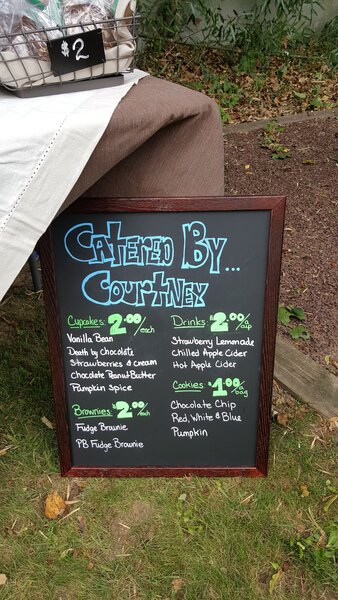 $2
Catered By...
Courtney
Cupcakes: 2.00/each
Vanilla Bean
Death by Chocolate
Strawberries & cream
Chocolate Peanut Butter
Pumpkin Spice
Brownies: $2.00/each
Fudge Brownie
PB Fudge Brownie
Drinks: 2.00/a cup
Strawberry Lemonade
Chilled Apple Cider
Hot Apple Cider
Cookies: $1.00/bag
Chocolate Chip
Red, White & Blue
Pumpkin